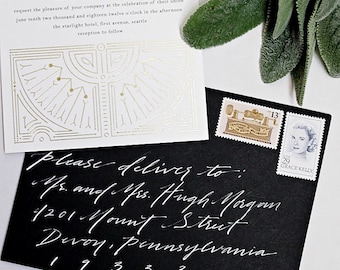 request the pleasure of your company at the celebration of their union
june tenth two thousand and eighteen twelve o'clock in the afternoon
the starlight hotel, first avenue, seattle
reception to follow
13
29
GRACE KELLY
Please deliver to:
Mr. and Mrs. Hugh Morgan
4201 Mount Street
Devon, Pennsylvania
1 9 3 3 3